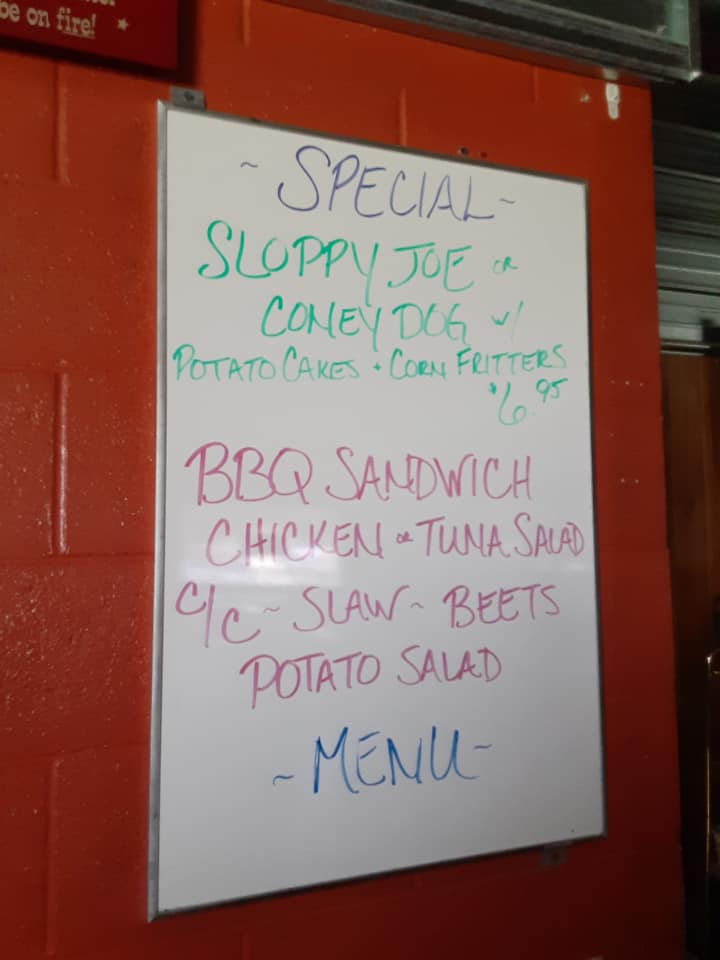 be on fire!
~ SPECIAL ~
SLOPPY JOE or
CONEY DOG w/
POTATO CAKES + CORN FRITTERS
$6.95
BBQ SANDWICH
CHICKEN or TUNA SALAD
C/C ~ SLAW ~ BEETS
POTATO SALAD
~ MENU ~